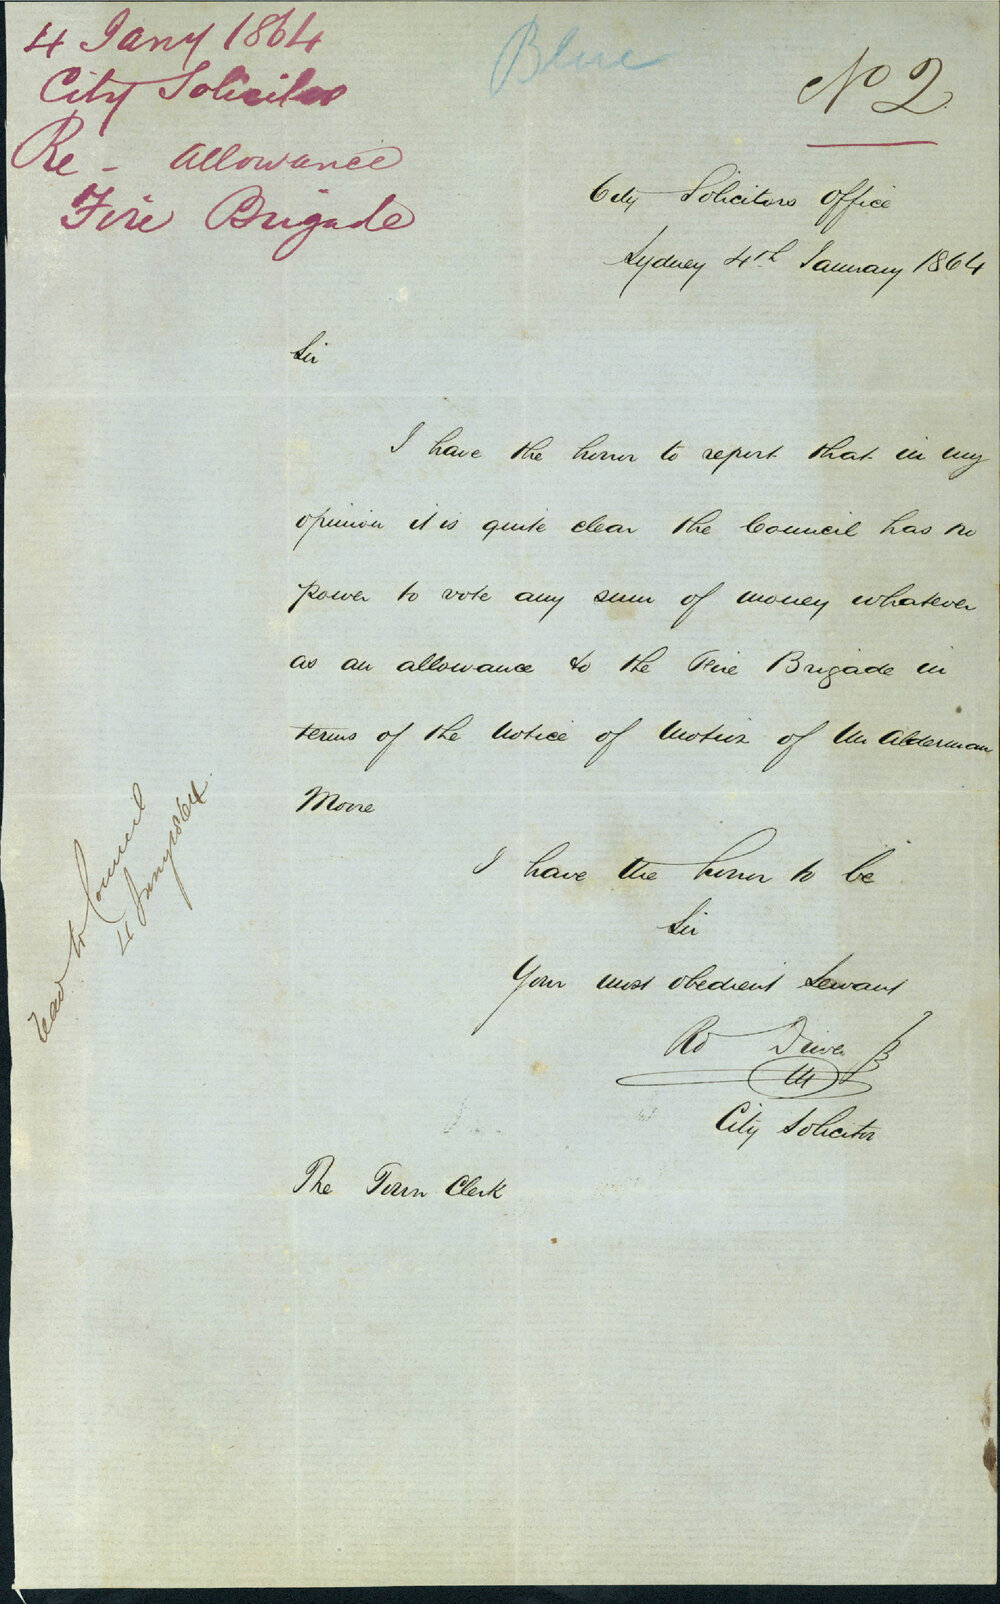 4 Jany 1864
City Solicitor
Re - Allowance
Fire Brigade
Blue
No 2
City Solicitors Office
Sydney 4th January 1864
Sir
I have the honor to report that in my
opinion it is quite clear the Council has no
power to vote any sum of money whatever
as an allowance to the Fire Brigade in
terms of the Notice of Motion of Mr Alderman
Moore
I have the honor to be
Sir
Your most obedient Servant
Rd Driver
City Solicitor
The Town Clerk
read to Council
4 Jany 1864